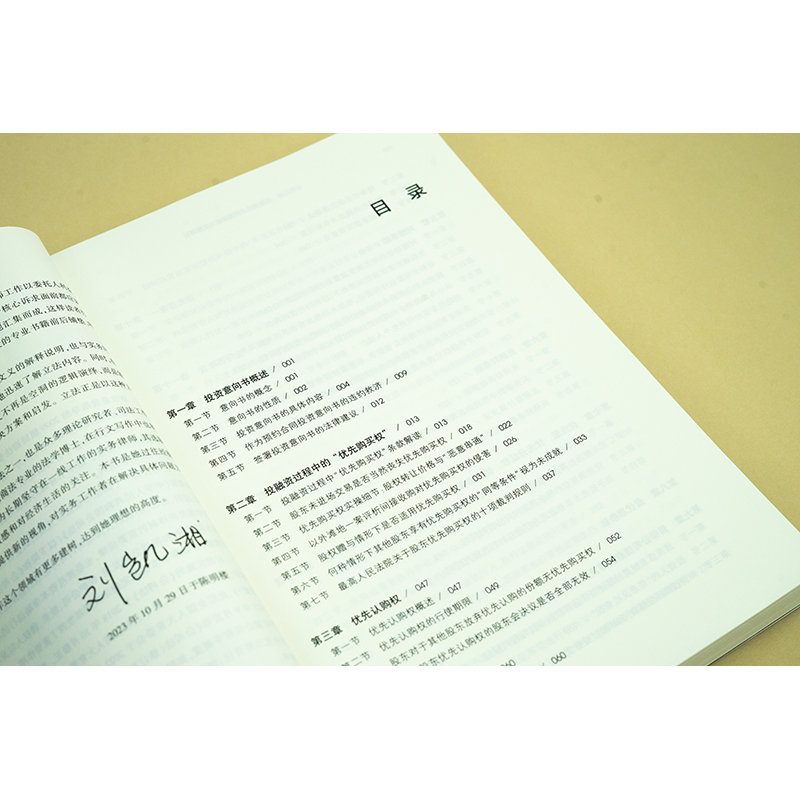 工作以委托人的
核心诉求面前都
汇集而成，这样读者
的专业书籍前后铺垫
文义的解释说明，也与实务
迅速了解立法内容。同时，
不再是空洞的逻辑演绎，而
决方案和启发。立法正是以这种
法之一，也是众多理论研究者、司法工
商法专业的法学博士，在行文写作中
长期坚守在一线工作的实务律师，其
感和对经济生活的关注。本书是她过往
提供新的视角，对实务工作者在解决具体问题
这个领域有更多建树，达到她理想的高度。
刘凯湘
2023年10月29日于陈明楼
目 录
第一章 投资意向书概述 / 001
第一节 意向书的概念 / 001
第二节 意向书的性质 / 002
第三节 投资意向书的具体内容 / 004
第四节 作为预约合同投资意向书的违约救济 / 009
第五节 签署投资意向书的法律建议 / 012
第二章 投融资过程中的“优先购买权” / 013
第一节 投融资过程中“优先购买权”条款解读 / 013
第二节 股东未进场交易是否当然丧失优先购买权 / 018
第三节 优先购买权实操细节，股权转让价格与“恶意串通” / 022
第四节 以外滩地一案评析间接收购对优先购买权的侵害 / 026
第五节 股权赠与情形下是否适用优先购买权 / 031
第六节 何种情形下其他股东享有优先购买权的“同等条件”视为未成就 / 033
第七节 最高人民法院关于股东优先购买权的十项裁判规则 / 037
第三章 优先认购权 / 047
第一节 优先认购权概述 / 047
第二节 优先认购权的行使期限 / 049
股东对于其他股东放弃优先认购的份额无优先购买权 / 052
股东优先认购权的股东会决议是否全部无效 / 054
060
/ 060